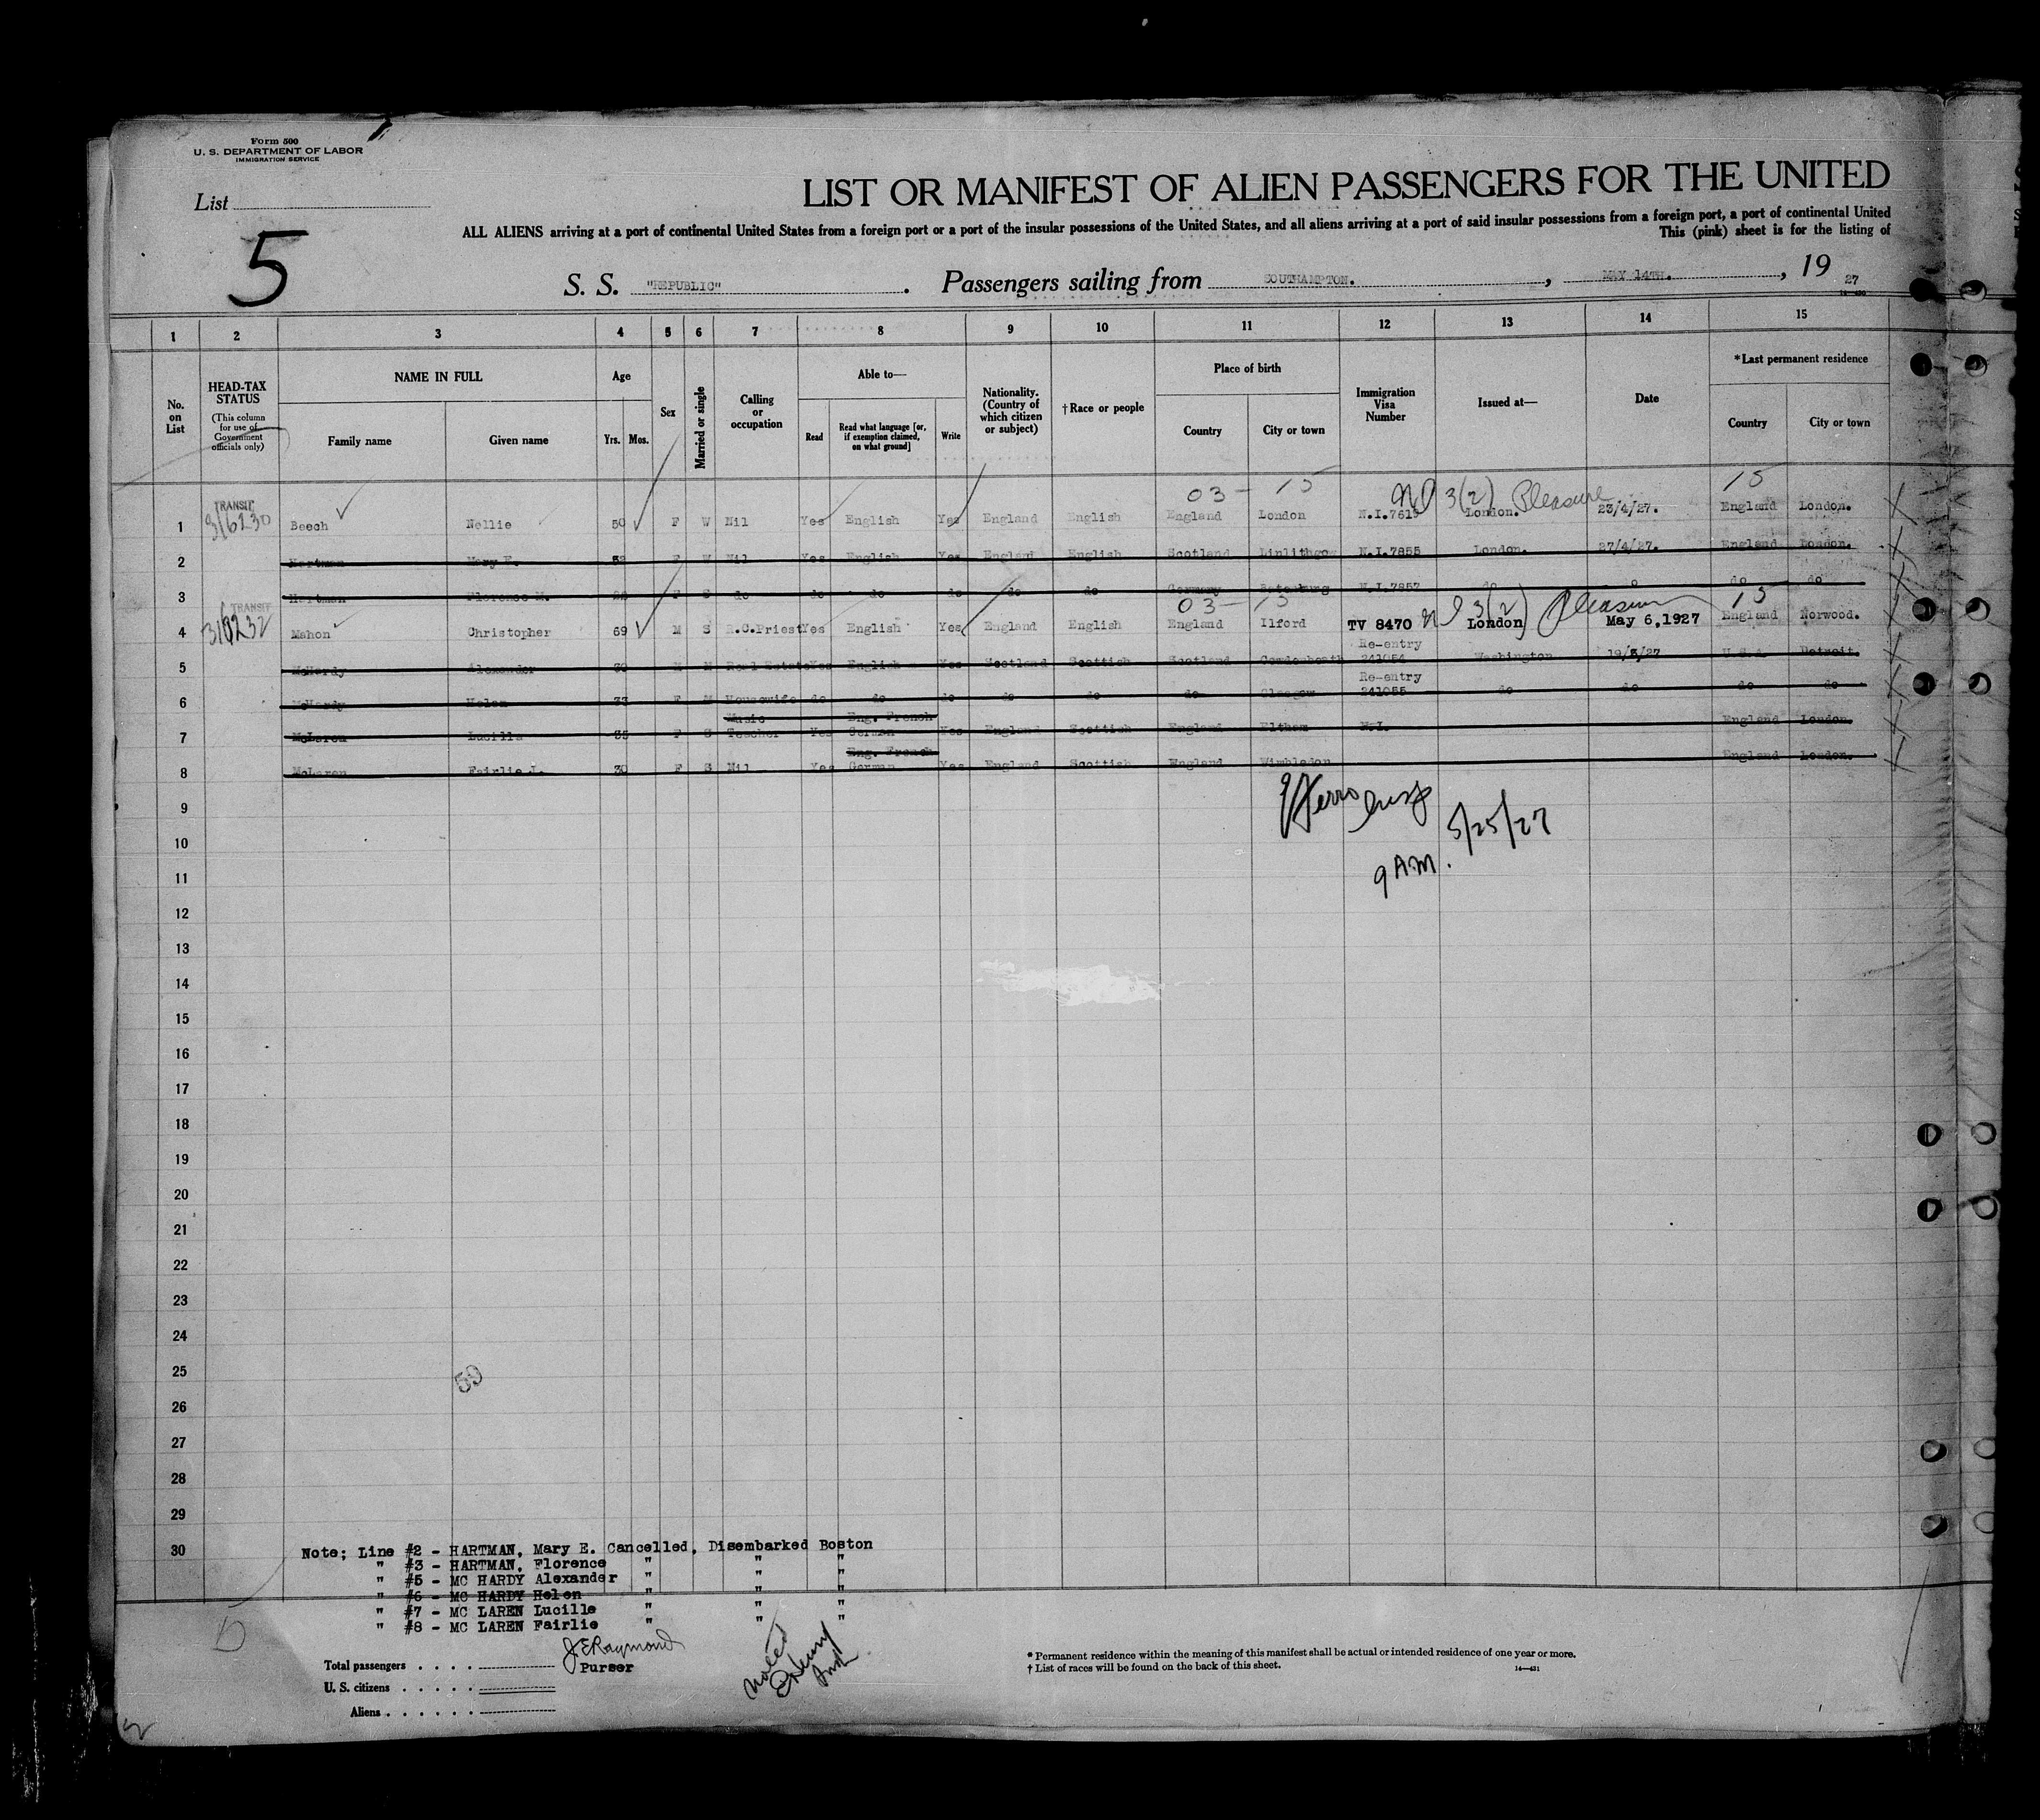 Form 500
U. S. DEPARTMENT OF LABOR
IMMIGRATION SERVICE
List
5
LIST OR MANIFEST OF ALIEN PASSENGERS FOR THE UNITED
ALL ALIENS arriving at a port of continental United States from a foreign port or a port of the insular possessions of the United States, and all aliens arriving at a port of said insular possessions from a foreign port, a port of continental United
This (pink) sheet is for the listing of
S. S. "REPUBLIC". Passengers sailing from SOUTHAMPTON., MAY 14TH., 19 27
1 2 3 4 5 6 7 8 9 10 11 12 13 14 15
No. on List
HEAD-TAX STATUS
(This column for use of Government officials only)
NAME IN FULL
Family name Given name
Age
Yrs. Mos.
Sex
Married or single
Calling or occupation
Able to—
Read
Read what language [or, if exemption claimed, on what ground]
Write
Nationality. (Country of which citizen or subject)
†Race or people
Place of birth
Country City or town
Immigration Visa Number
Issued at—
Date
*Last permanent residence
Country City or town
03 - 15 3(2) Pleasure 15
TRANSIT
1 316230 Beech Nellie 50 F W Nil Yes English Yes England English England London N.I.7619 London. 23/4/27. England London.
2 Hartman Mary E. F W Nil Yes English Yes England English Scotland Linlithgow N.I.7855 London. 27/4/27. England London.
3 Hartman Florence M. F S do do do do do do Germany N.I.7857 do do do
03 - 15 3(2) Pleasure 15
TRANSIT
4 Mahon Christopher 69 M S R.C.Priest Yes English Yes England English England Ilford TV 8470 London May 6,1927 England Norwood.
Re-entry
5 McHardy Alexander M M Real Estate Yes English Yes Scotland Scottish Scotland Cowdenbeath 241054 Washington 19/3/27 U.S.A. Detroit.
Re-entry
6 McHardy Helen 37 F M Housewife do do do do do do Glasgow 241055 do do do do
Music Eng. French
7 McLaren Lucille 35 F S Teacher Yes German Yes England Scottish England Eltham N.I. England London.
Eng. French
8 McLaren Fairlie L. 30 F S Nil Yes German Yes England Scottish England Wimbledon England London.
9
5/25/27
10
9 AM.
11
12
13
14
15
16
17
18
19
20
21
22
23
24
25
59
26
27
28
29
30
Note; Line #2 - HARTMAN, Mary E. Cancelled, Disembarked Boston
" #3 - HARTMAN, Florence " " "
" #5 - MC HARDY Alexander " " "
" #6 - MC HARDY Helen " " "
" #7 - MC LAREN Lucille " " "
" #8 - MC LAREN Fairlie " " "
J. E Raymond
Purser
Noted
Total passengers . . . .
U. S. citizens . . . . .
Aliens . . . . . .
* Permanent residence within the meaning of this manifest shall be actual or intended residence of one year or more.
† List of races will be found on the back of this sheet.
14—431